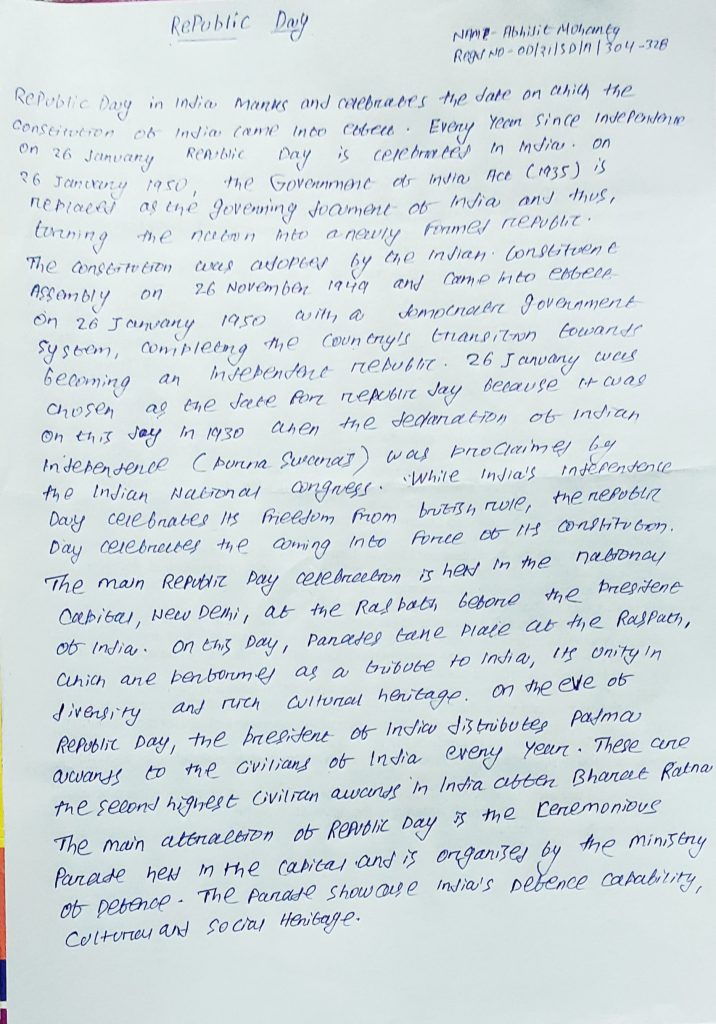 Republic Day
NAME - Abhijit Mohanty
Regd NO - OD/21/SD/A/304-328
Republic Day in India Marks and celebrates the date on which the
Constitution of India came Into effect. Every Year Since Independence
On 26 January Republic Day is celebrated in India. on
26 January 1950, the Government of India Act (1935) is
replaced as the governing document of India and thus,
turning the nation into a newly formed republic.
The constitution was adopted by the Indian Constituent
Assembly on 26 November 1949 and came into effect
On 26 January 1950 with a democratic government
System, completing the Country's transition towards
becoming an independent republic. 26 January was
chosen as the date for republic day because it was
On this day in 1930 when the declaration of Indian
Independence (purna Swaraj) was proclaimed by
the Indian National Congress. While India's independence
Day celebrates its freedom from british rule, the republic
Day celebrates the coming Into force of its constitution.
The main Republic Day celebration is held in the national
Capital, New Delhi, at the Rajpath before the President
of India. On this Day, parades take place at the Rajpath,
which are performed as a tribute to India, its unity in
diversity and rich cultural heritage. On the eve of
Republic Day, the president of India distributes Padma
awards to the civilians of India every year. These are
the second highest civilian awards in India after Bharat Ratna
The main attraction of Republic Day is the Ceremonious
Parade held in the capital and is organised by the ministry
of Defence. The parade showcase India's Defence capability,
Cultural and Social Heritage.